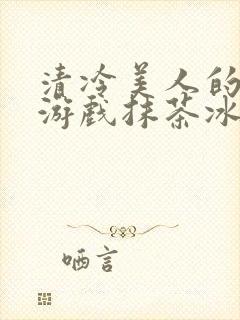 清冷美人的
游戏抹茶冰
哂言